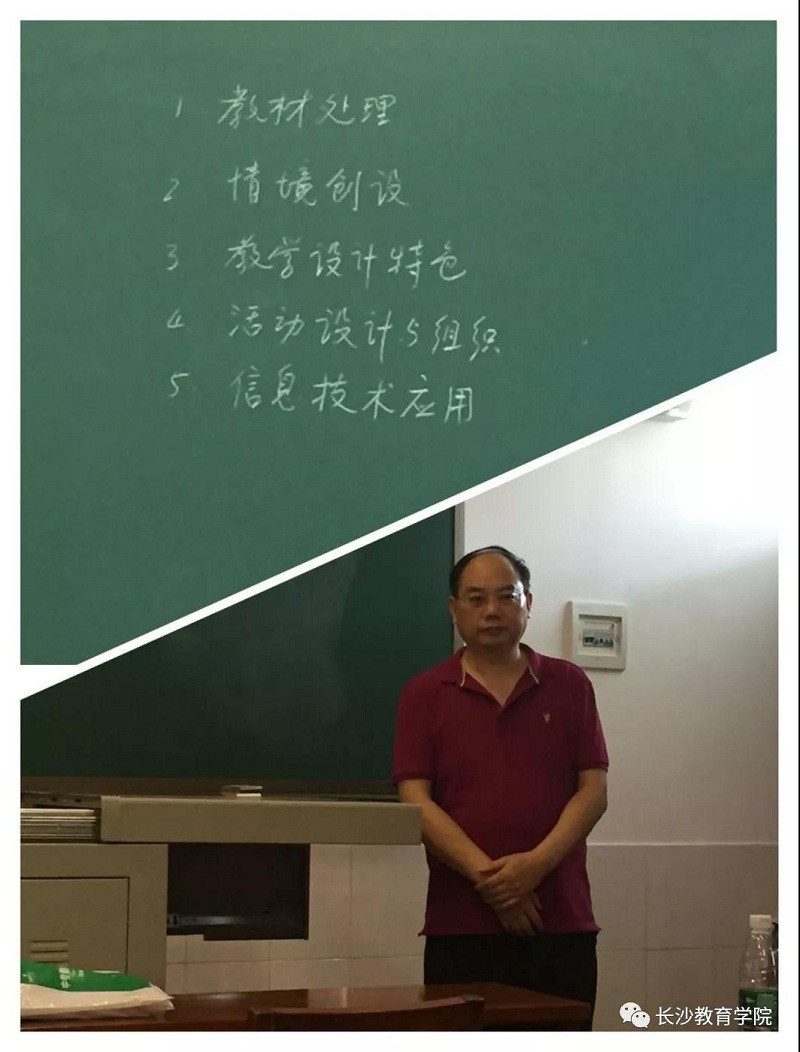 1 教材处理
2 情境创设
3 教学设计特色
4 活动设计与组织
5. 信息技术应用
长沙教育学院